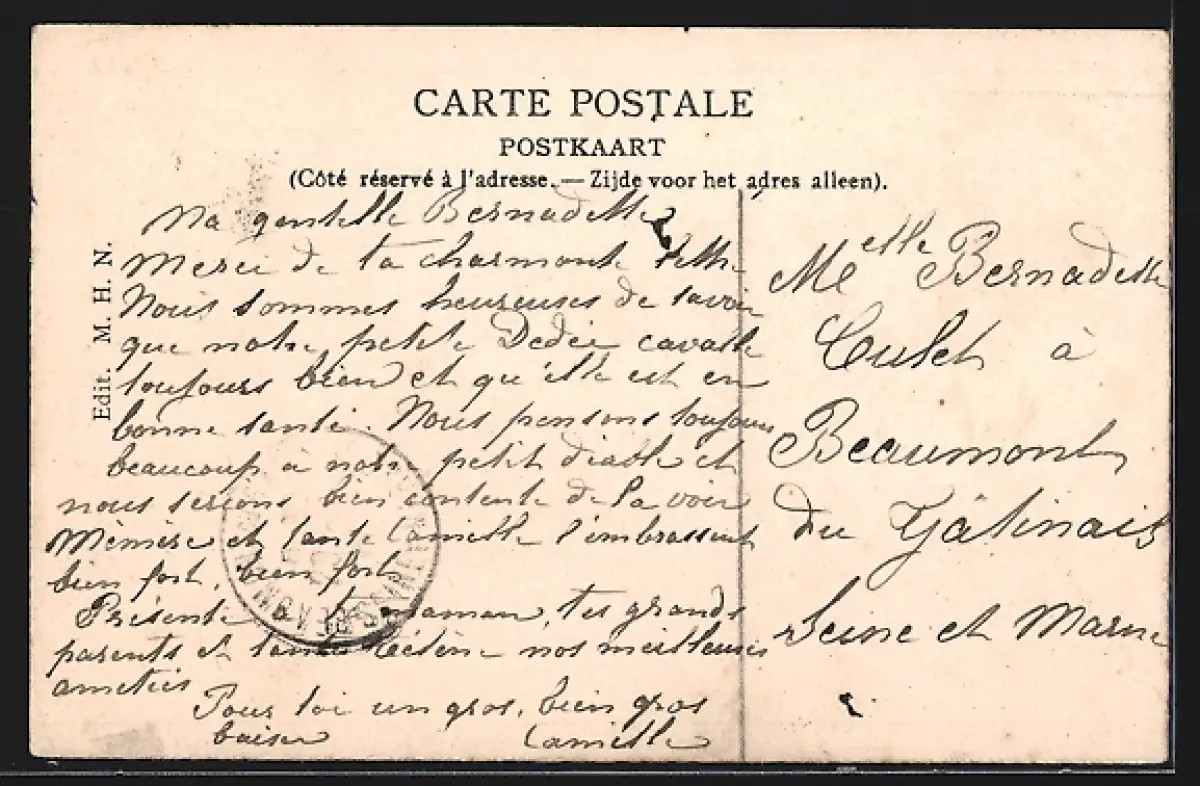 CARTE POSTALE
POSTKAART
(Côté réservé à l'adresse. — Zijde voor het adres alleen).
Edit. M. H. N.
Ma gentille Bernadette
Merci de ta charmante lettre
Nous sommes heureuses de savoir
que notre petite Dédée cavalle
toujours bien et qu'elle est en
bonne santé. Nous pensons toujours
beaucoup à notre petit diable et
nous serions bien contente de la voir
Mémère et tante Camille t'embrassent
bien fort, bien fort
Présente à ta maman, tes grands
parents et tante nos meilleures
amitiés
Pour toi un gros, bien gros
baiser Camille
Melle Bernadette
Culet à
Beaumont
du Gâtinais
Seine et Marne